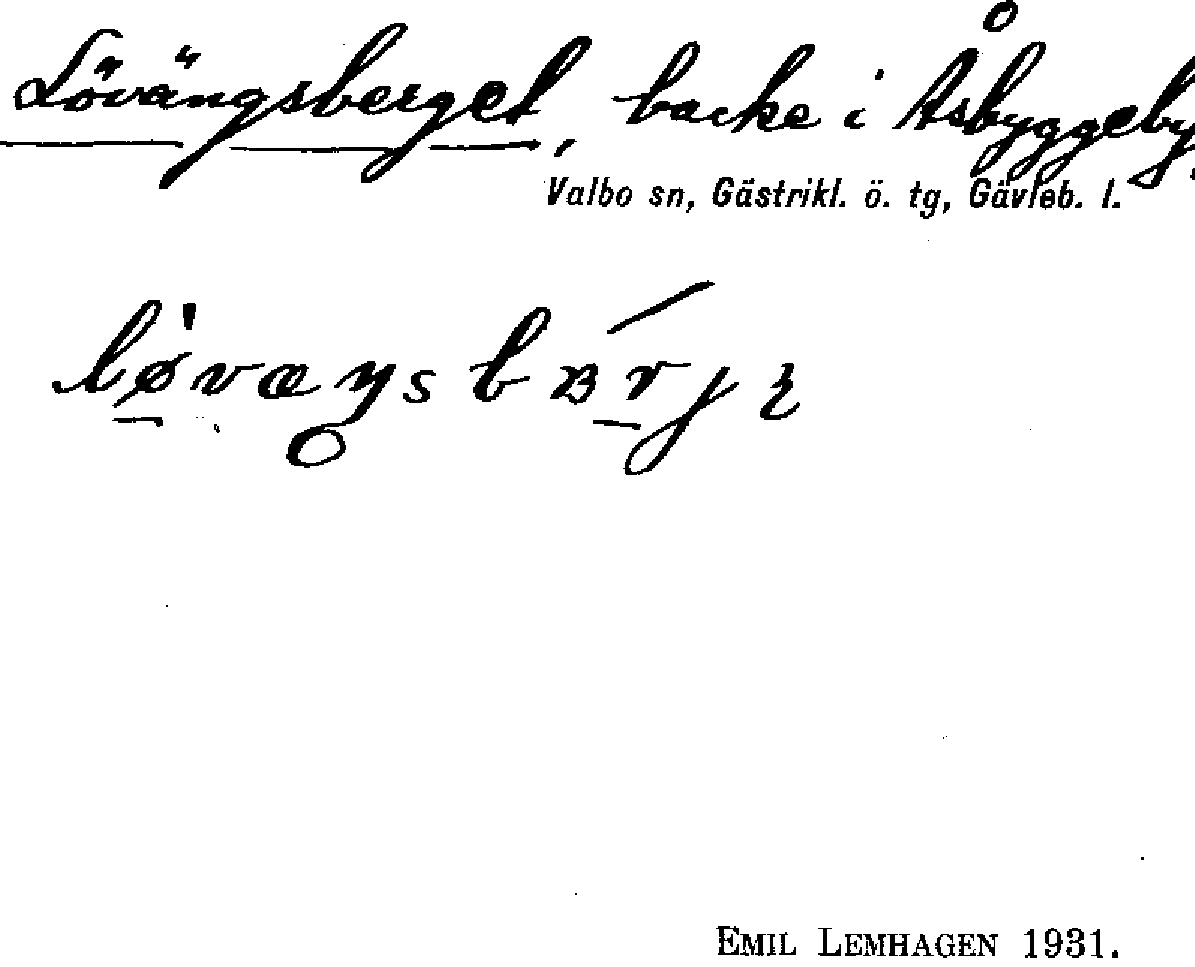 Lövängsberget, backe i Åsbyggeby,
Valbo sn, Gästrikl. ö. tg, Gävleb. l.
EMIL LEMHAGEN 1931.